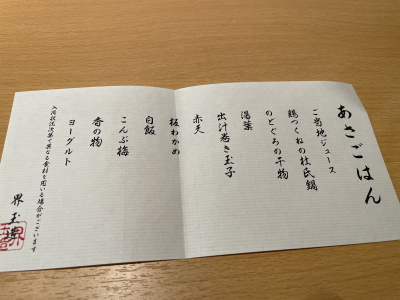 あさごはん
ご当地ジュース
鶏つくねの杜氏鍋
のどぐろの干物
湯葉
出汁巻き玉子
赤天
板わかめ
白飯
こんぶ梅
香の物
ヨーグルト
入荷状況次第で異なる食材を用いる場合がございます
界 玉造